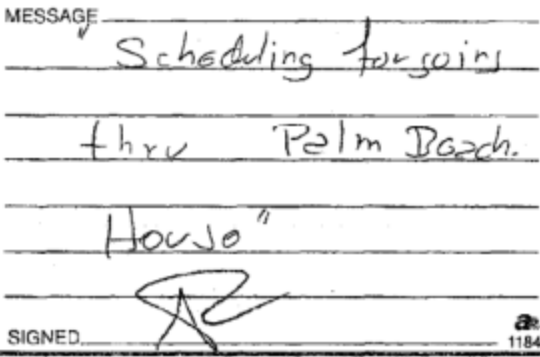 MESSAGE
" Scheduling for going
thru Palm Beach.
House "
SIGNED
1184